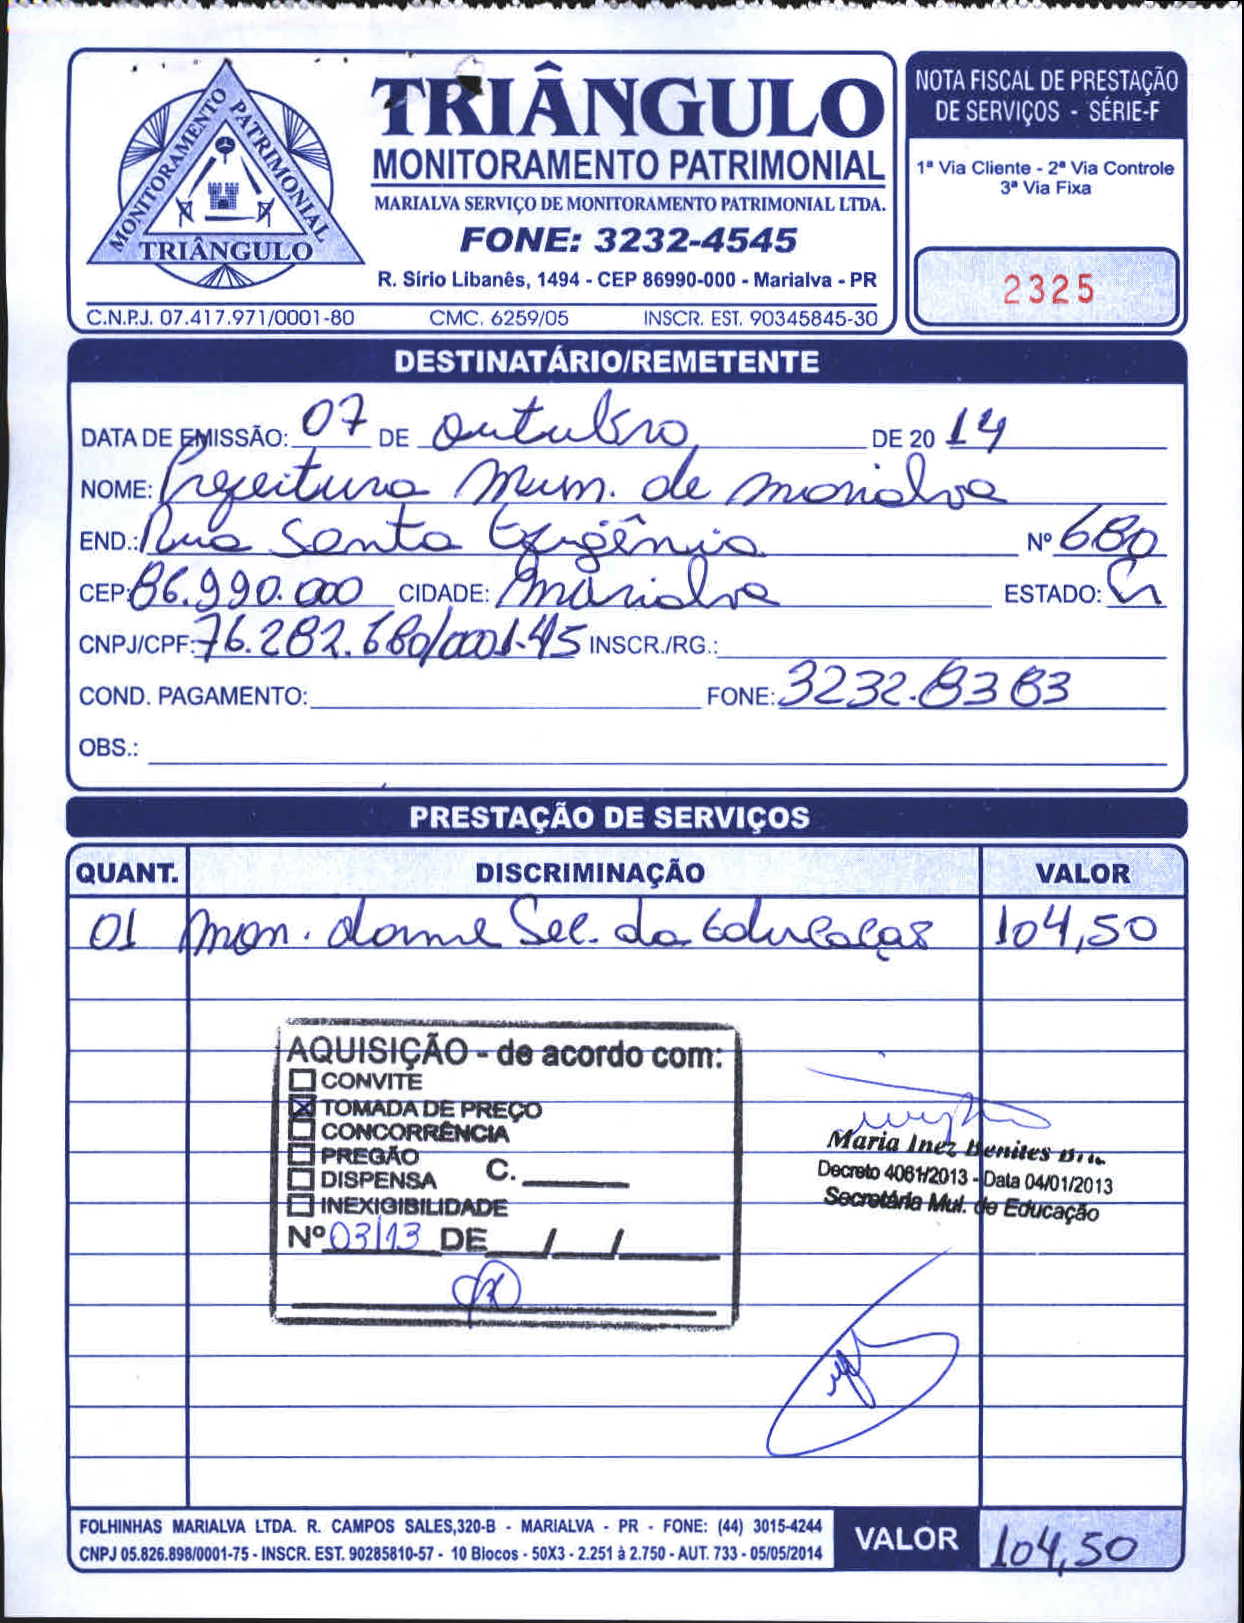 MONITORAMENTO PATRIMONIAL
TRIÂNGULO
TRIÂNGULO
MONITORAMENTO PATRIMONIAL
MARIALVA SERVIÇO DE MONITORAMENTO PATRIMONIAL LTDA.
FONE: 3232-4545
R. Sírio Libanês, 1494 - CEP 86990-000 - Marialva - PR
C.N.P.J. 07.417.971/0001-80 CMC. 6259/05 INSCR. EST. 90345845-30
NOTA FISCAL DE PRESTAÇÃO
DE SERVIÇOS - SÉRIE-F
1ª Via Cliente - 2ª Via Controle
3ª Via Fixa
2325
DESTINATÁRIO/REMETENTE
DATA DE EMISSÃO: 07 DE outubro DE 20 14
NOME: Prefeitura Mum. de Marialva
END.: Rua Santa Efigênia Nº 680
CEP: 86.990.000 CIDADE: Marialva ESTADO:
CNPJ/CPF: 76.282.680/0001-45 INSCR./RG.:
COND. PAGAMENTO: FONE: 3232-8383
OBS.:
PRESTAÇÃO DE SERVIÇOS
QUANT. DISCRIMINAÇÃO VALOR
01 Mon. alarme Sec. da Educação 104,50
AQUISIÇÃO - de acordo com:
CONVITE
TOMADA DE PREÇO
CONCORRÊNCIA
PREGÃO
DISPENSA C.
INEXIGIBILIDADE
Nº 03/13 DE / /
Maria Inez Benites
Decreto 4061/2013 - Data 04/01/2013
Secretária Mul. de Educação
FOLHINHAS MARIALVA LTDA. R. CAMPOS SALES,320-B - MARIALVA - PR - FONE: (44) 3015-4244
CNPJ 05.826.898/0001-75 - INSCR. EST. 90285810-57 - 10 Blocos - 50X3 - 2.251 à 2.750 - AUT. 733 - 05/05/2014
VALOR 104,50